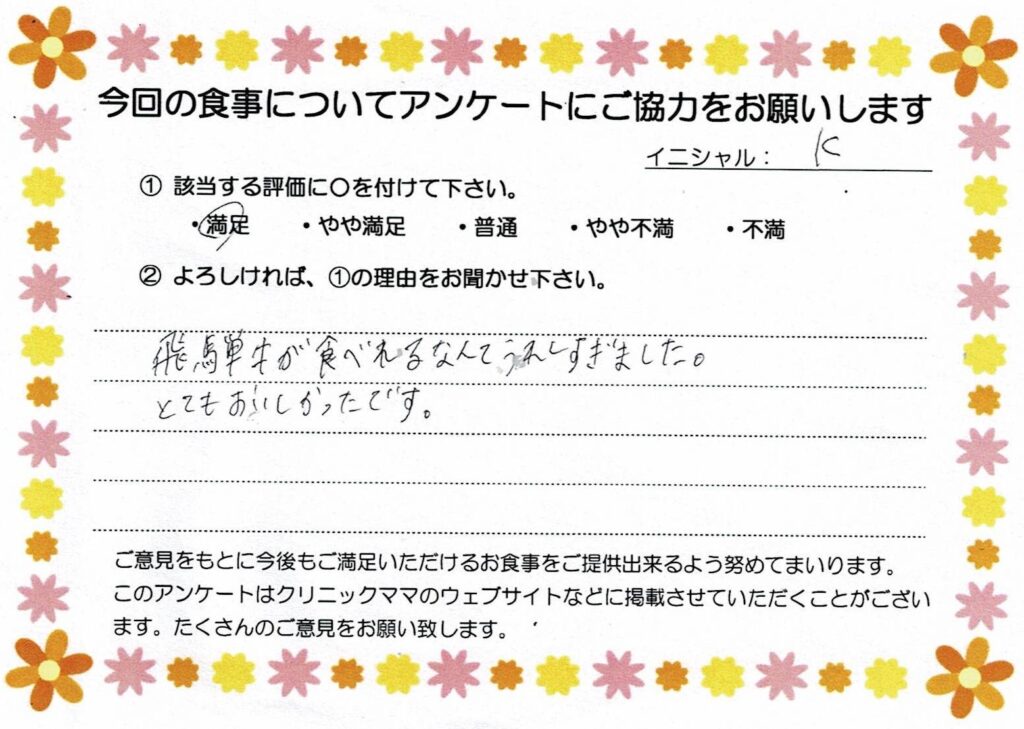 今回の食事についてアンケートにご協力をお願いします
イニシャル： K
① 該当する評価に〇を付けて下さい。
・満足 ・やや満足 ・普通 ・やや不満 ・不満
② よろしければ、①の理由をお聞かせ下さい。
飛騨牛が食べれるなんてうれしすぎました。
とてもおいしかったです。
ご意見をもとに今後もご満足いただけるお食事をご提供出来るよう努めてまいります。
このアンケートはクリニックママのウェブサイトなどに掲載させていただくことがござい
ます。たくさんのご意見をお願い致します。